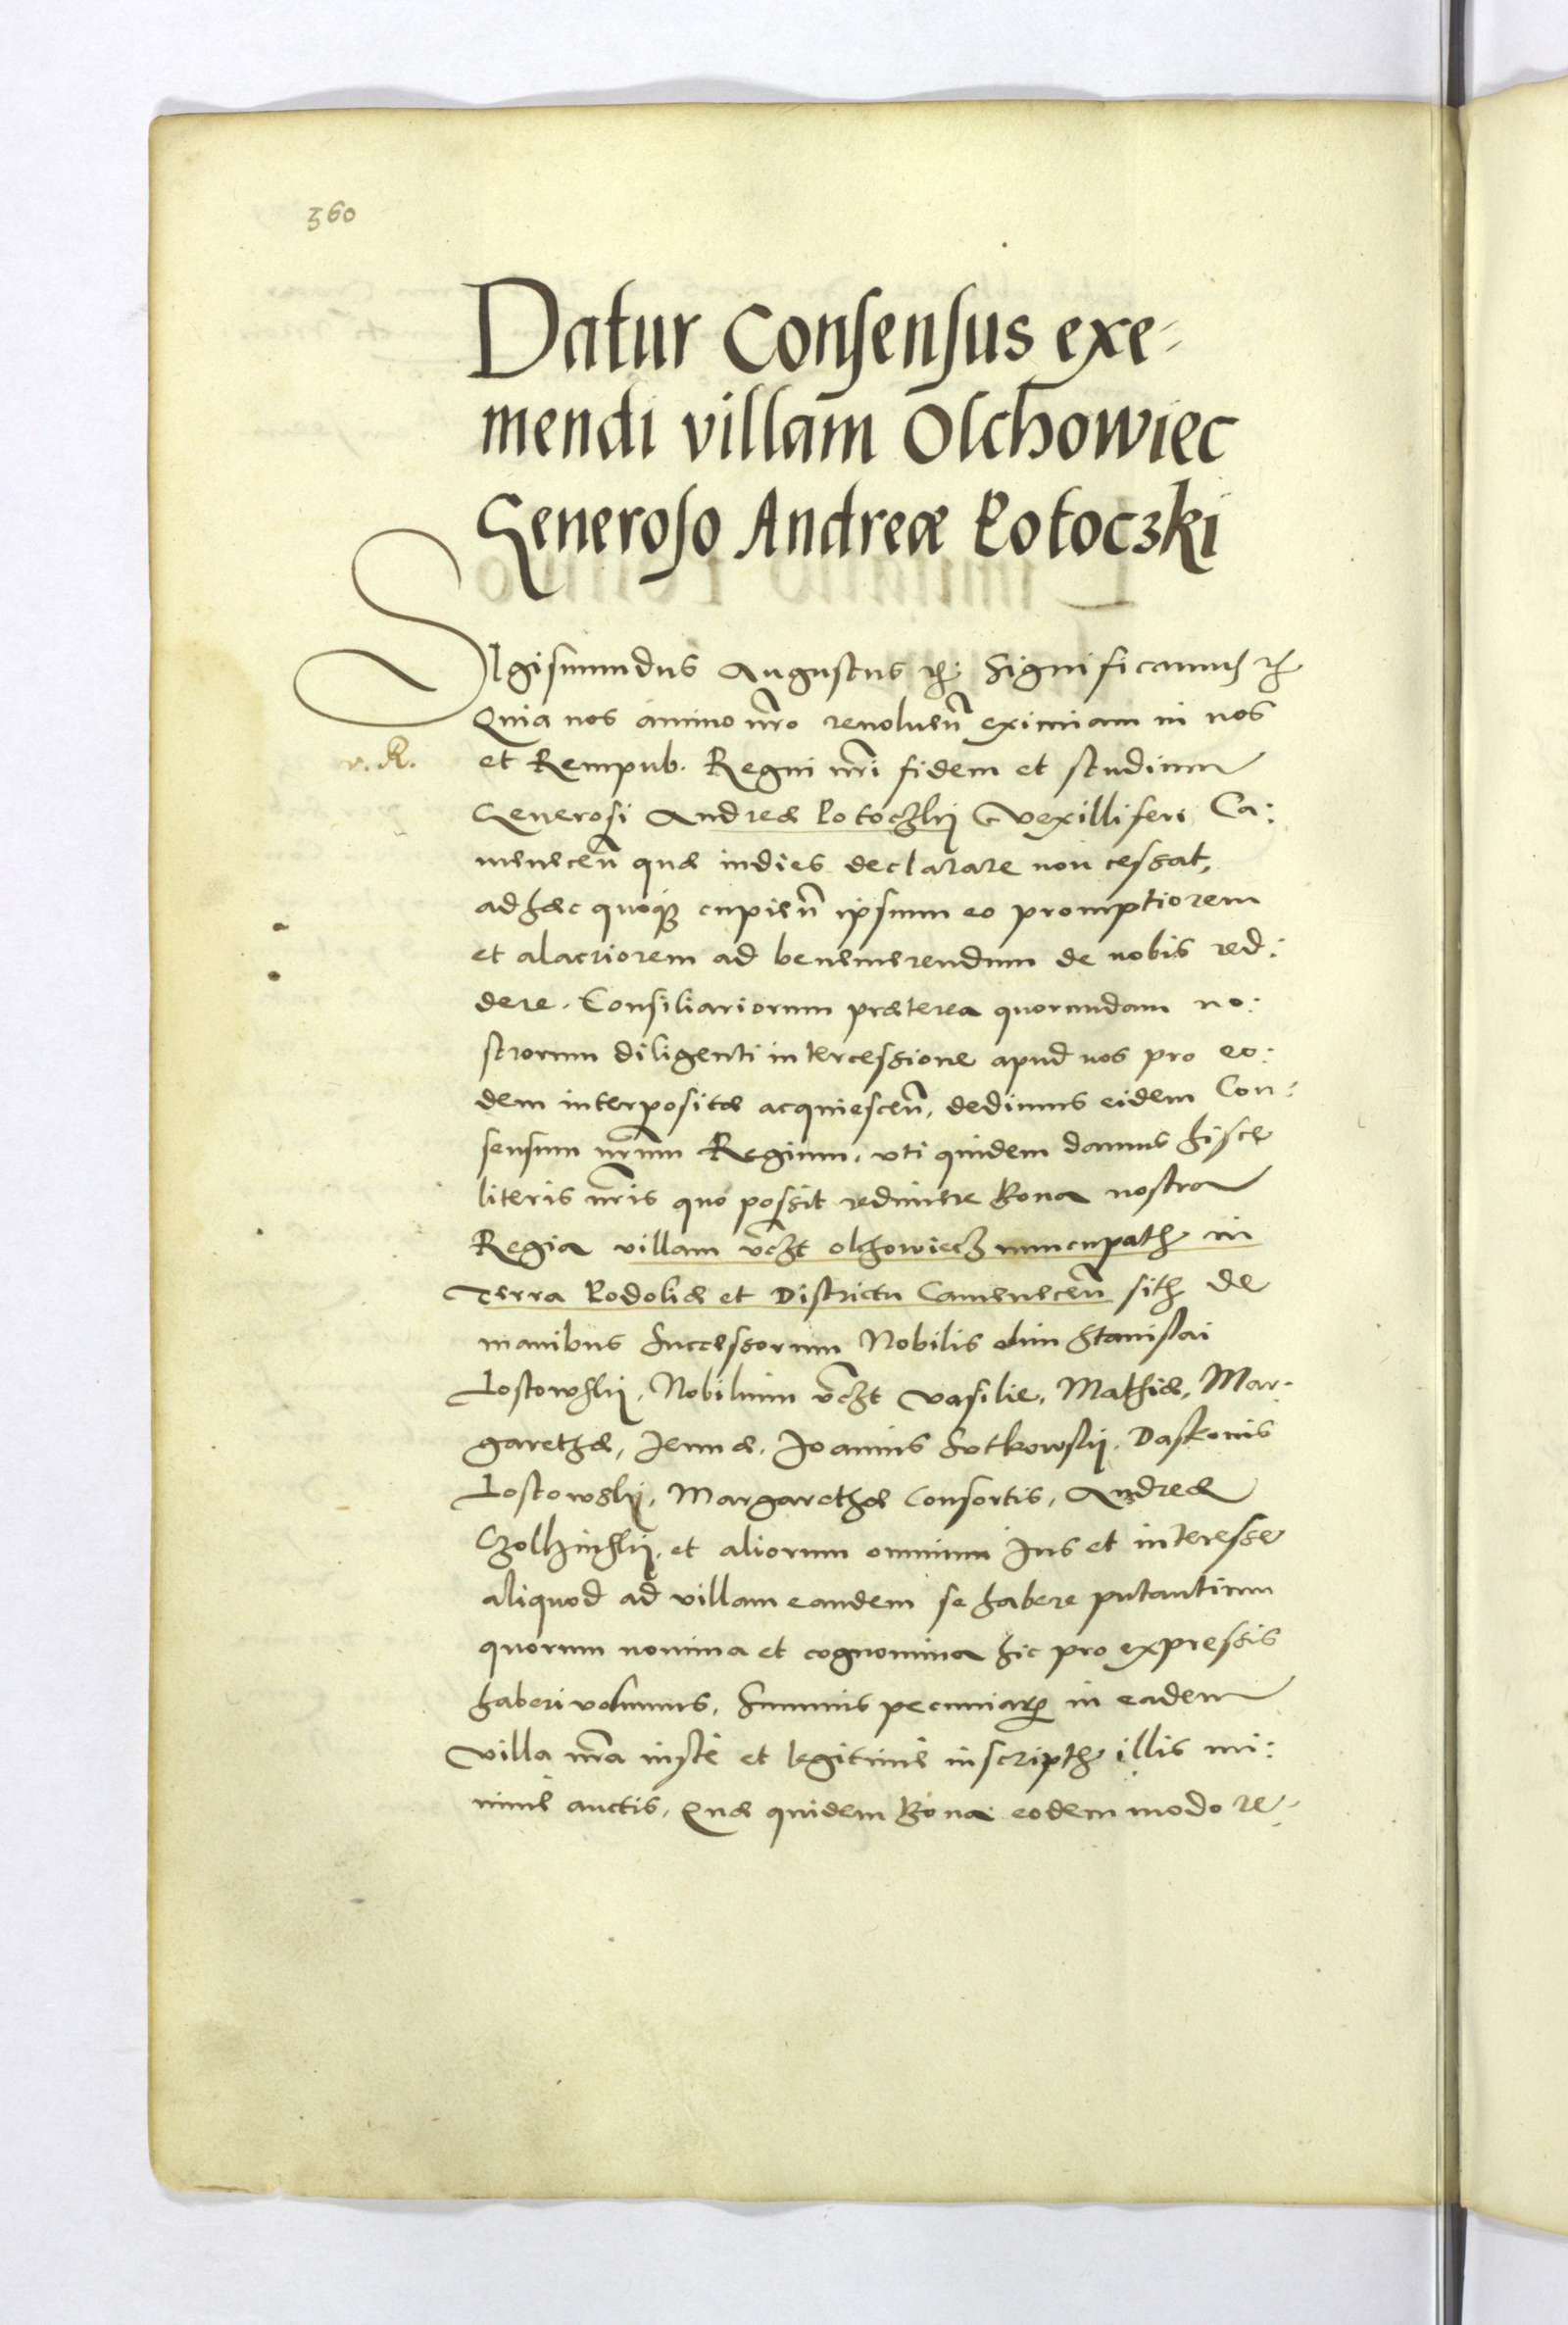 360
Datur Consensus exe-
mendi villam Olchowiec
Generoso Andreæ Potoczki
SIgismundus Augustus etc: Significamus etc
Quia nos animo nro̅ revoluen̅ eximiam in nos
v. R.
et Rempub. Regni nri̅ fidem et studium
Generosi Andreæ Potoczkij Vexilliferi Ca:
menecen̅ quæ indies declarare non cessat,
adhæc quoq3 cupien̅ ipsum eo promptiorem
et alacriorem ad benemerendum de nobis red:
dere. Consiliariorum præterea quorundam no:
strorum diligenti intercessione apud nos pro eo:
dem interpositæ acquiescen̅, dedimus eidem Con:
sensum nrum̅ Regium, uti quidem damus hisce
literis nris̅ quo possit redimere Bona nostra
Regia villam vczt̅ olchowiecz nuncupath in
Terra Podoliæ et Districtu Camenecen̅ sith de
manibus Successorum Nobilis olim Stanislai
Jostowskij, Nobilium vczt̅ Vasilie, Mathiæ, Mar-
garethæ, Jennæ, Joannis Sutkowskij, Daskonis
Jostowskij, Margarethæ Consortis, Andreæ
et aliorum omnium Jus et interesse
aliquod ad villam eandem se habere putantium
quorum nomina et cognomina hic pro expressis
haberi volumus, Summis pecuniarum in eadem
villa nra̅ iuste et legitime inscripth illis mi:
nime auctis, Quæ quidem Bona eodem modo re-